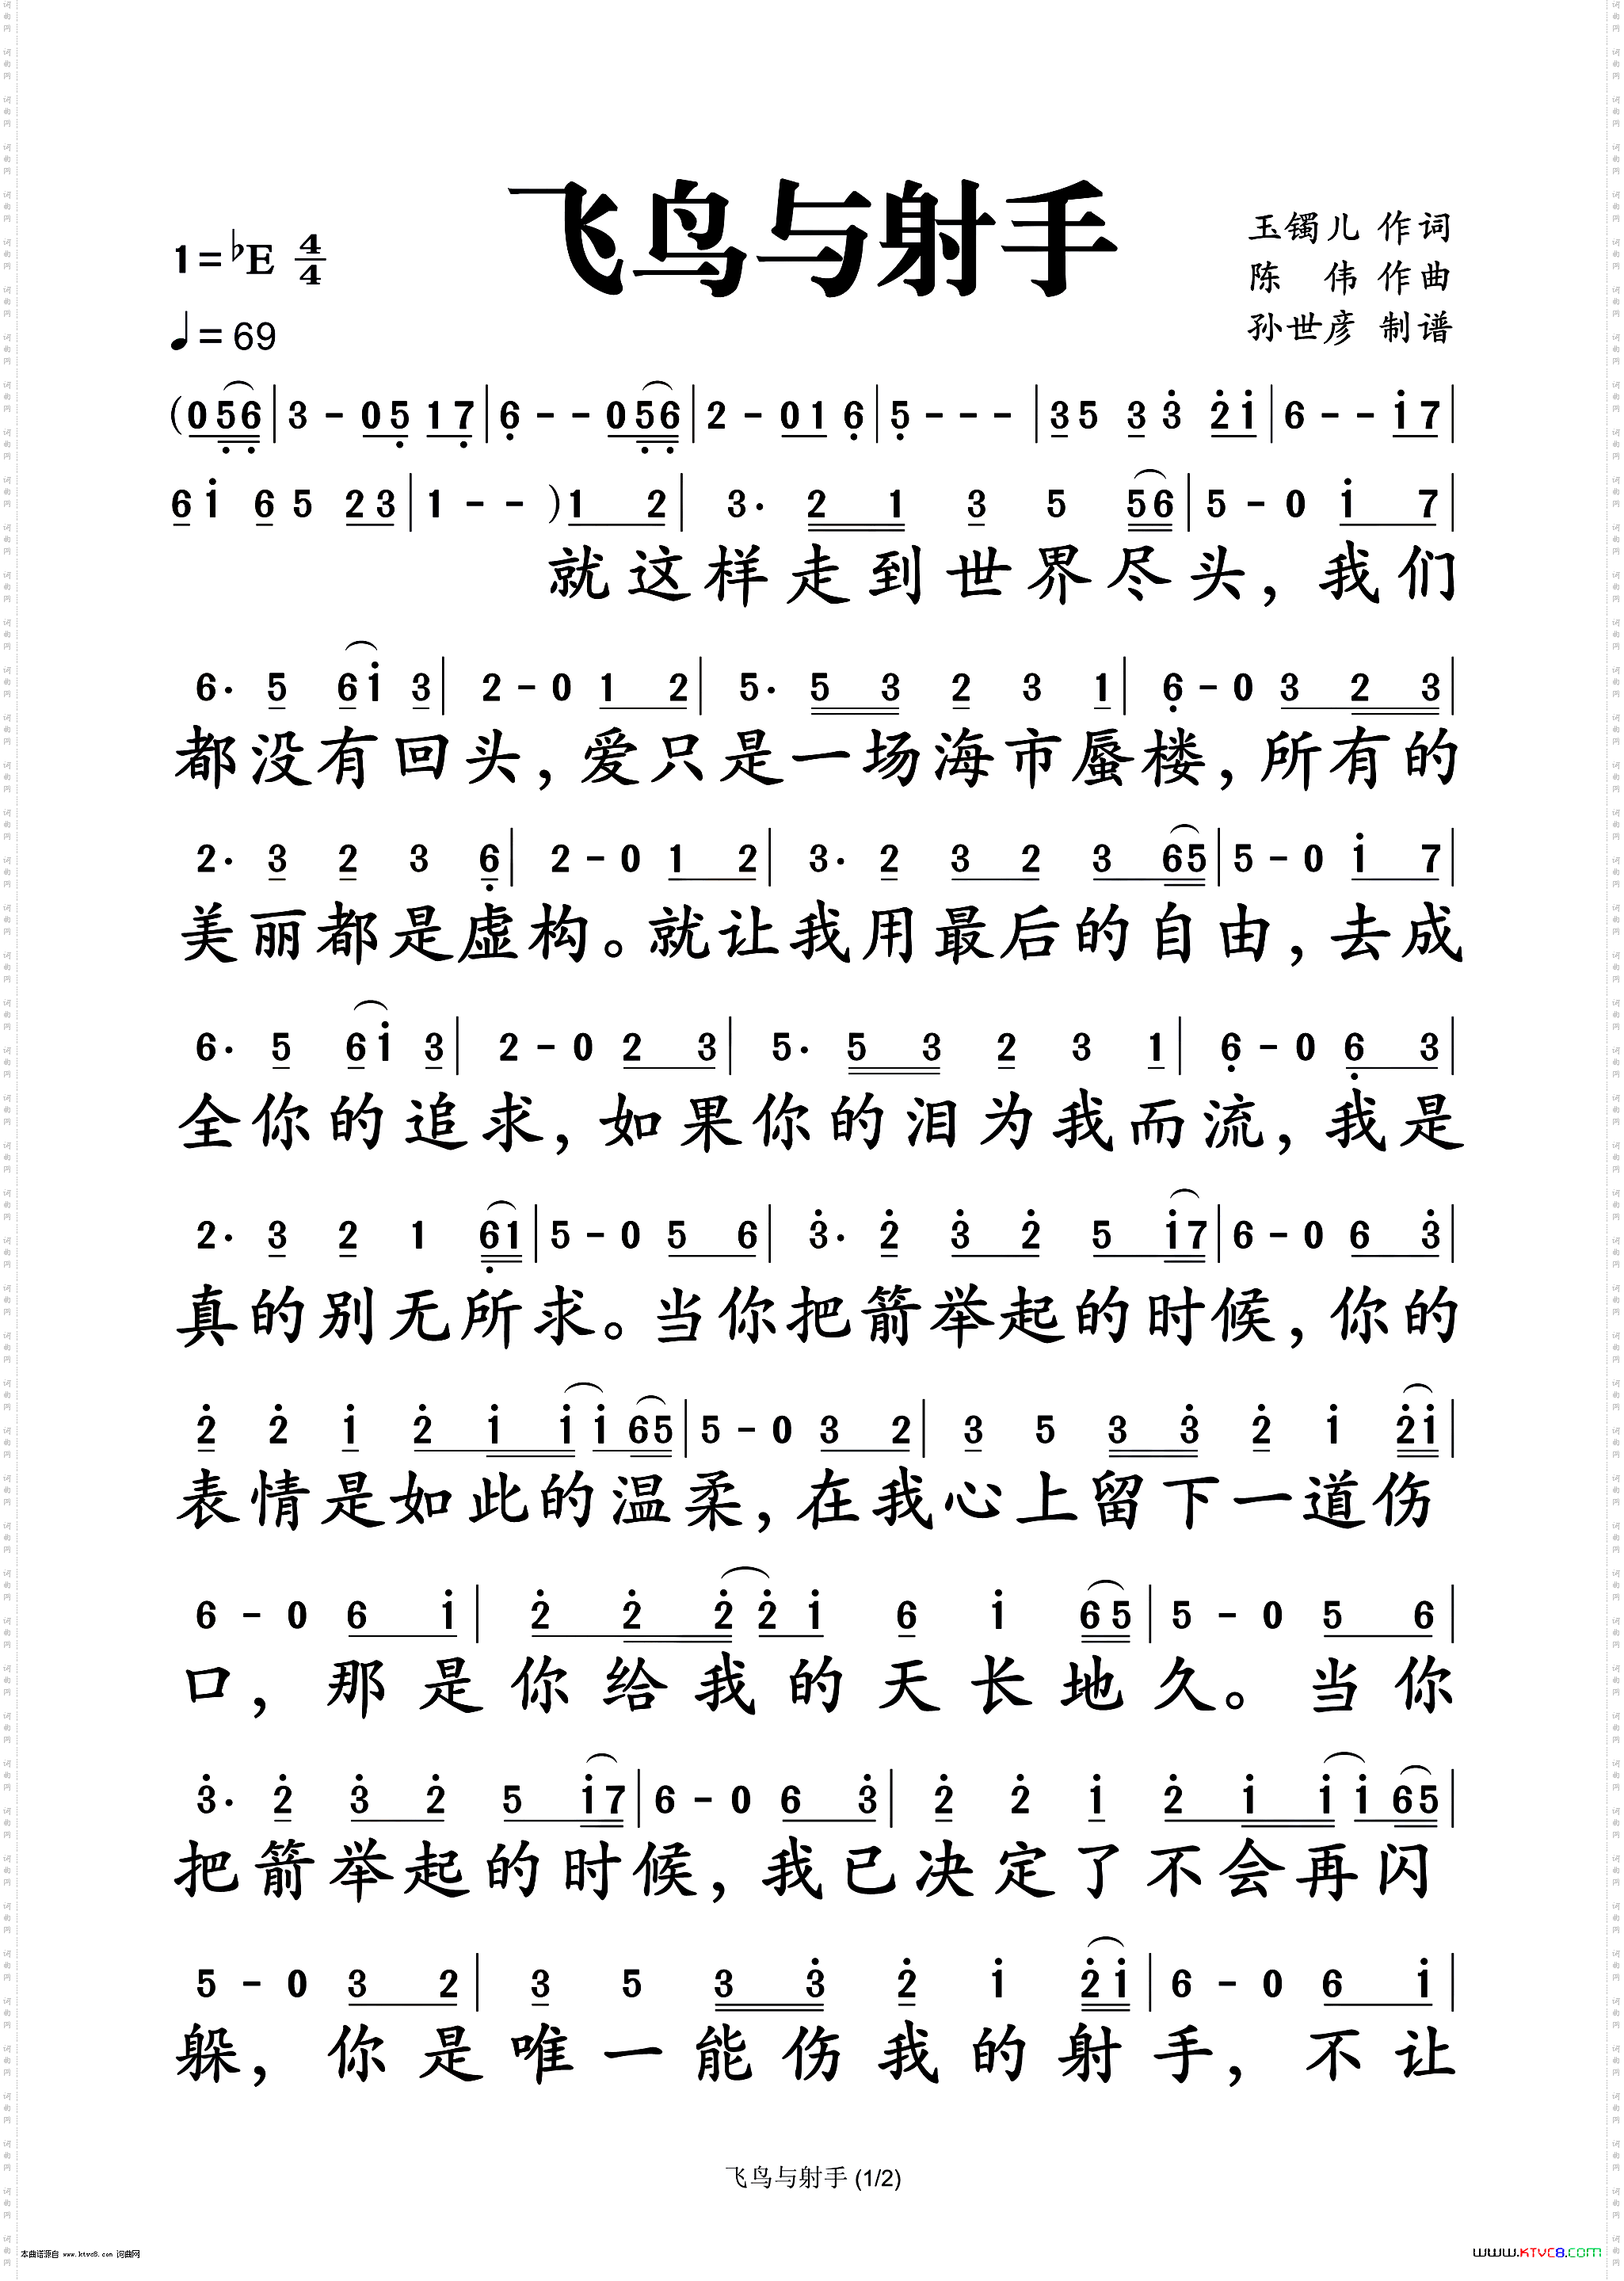 飞鸟与射手
1=♭E 4/4
♩=69
玉镯儿 作词
陈 伟 作曲
孙世彦 制谱
(0 5̣6̣ | 3 - 0 5̣ 1 7̣ | 6̣ - - 0 5̣6̣ | 2 - 0 1 6̣ | 5̣ - - - | 3 5 3 3̇ 2̇ 1̇ | 6 - - 1̇ 7 |
6 1̇ 6 5 2 3 | 1 - - ) 1 2 | 3· 2 1 3 5 5 6 | 5 - 0 1̇ 7 |
就这样走到世界尽头,我们
6· 5 6 1̇ 3 | 2 - 0 1 2 | 5· 5 3 2 3 1 | 6̣ - 0 3 2 3 |
都没有回头,爱只是一场海市蜃楼,所有的
2· 3 2 3 6̣ | 2 - 0 1 2 | 3· 2 3 2 3 6 5 | 5 - 0 1̇ 7 |
美丽都是虚构。就让我用最后的自由,去成
6· 5 6 1̇ 3 | 2 - 0 2 3 | 5· 5 3 2 3 1 | 6̣ - 0 6̣ 3 |
全你的追求,如果你的泪为我而流,我是
2· 3 2 1 6̣ 1 | 5 - 0 5 6 | 3̇· 2̇ 3̇ 2̇ 5 1̇ 7 | 6 - 0 6 3̇ |
真的别无所求。当你把箭举起的时候,你的
2̇ 2̇ 1̇ 2̇ 1̇ 1̇ 1̇ 6 5 | 5 - 0 3 2 | 3 5 3 3̇ 2̇ 1̇ 2̇ 1̇ |
表情是如此的温柔,在我心上留下一道伤
6 - 0 6 1̇ | 2̇ 2̇ 2̇ 2̇ 1̇ 6 1̇ 6 5 | 5 - 0 5 6 |
口,那是你给我的天长地久。当你
3̇· 2̇ 3̇ 2̇ 5 1̇ 7 | 6 - 0 6 3̇ | 2̇ 2̇ 1̇ 2̇ 1̇ 1̇ 1̇ 6 5 |
把箭举起的时候,我已决定了不会再闪
5 - 0 3 2 | 3 5 3 3̇ 2̇ 1̇ 2̇ 1̇ | 6 - 0 6 1̇ |
躲,你是唯一能伤我的射手,不让
飞鸟与射手 (1/2)
本曲谱源自 www.ktvc8.com 词曲网
www.KTVC8.com